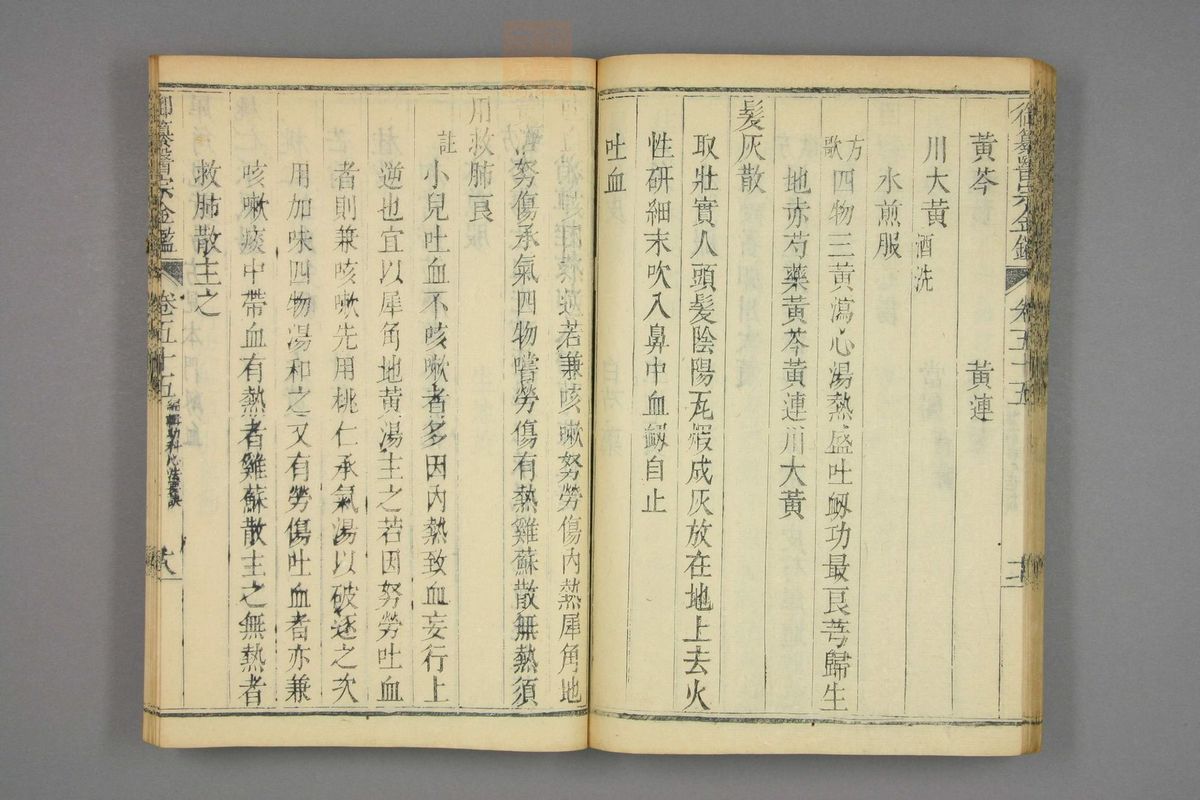 黃芩 黃連
川大黃酒洗
水煎服
方歌 四物三黃瀉心湯熱盛吐衂功最良芎歸生
地赤芍藥黃芩黃連川大黃
髮灰散
取壯實人頭髮陰陽瓦煆成灰放在地上去火
性研細末吹入鼻中血衂自止
吐血
逆若兼咳嗽努勞傷內熱犀角地
努傷承氣四物嚐勞傷有熱雞蘇散無熱須
用救肺良
註 小兒吐血不咳嗽者多因內熱致血妄行上
逆也宜以犀角地黃湯主之若因努勞吐血
者則兼咳嗽先用桃仁承氣湯以破逐之次
用加味四物湯和之又有勞傷吐血者亦兼
咳嗽痰中帶血有熱者雞蘇散主之無熱者
救肺散主之
御纂醫宗金鑑 卷五十五 編輯幼科心法要訣
御纂醫宗金鑑 卷五十五